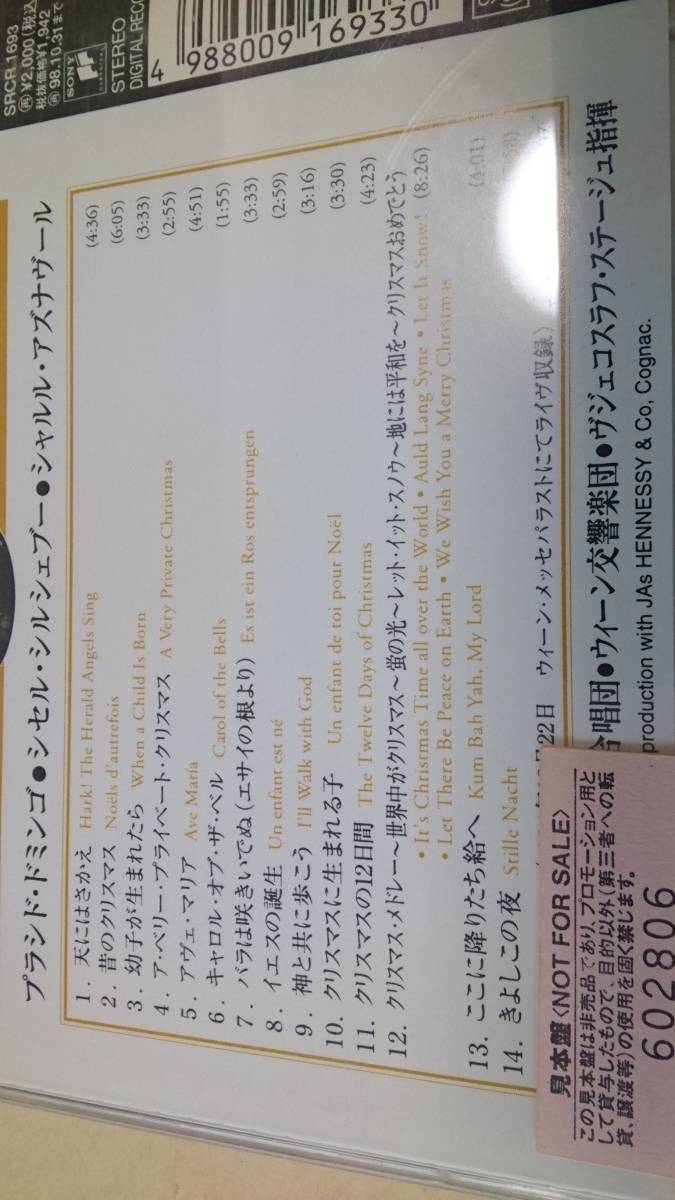 SRCR 1693
㊥¥2,000(税込)
税抜価格¥1,942
㊥98.10.31まで
SONY
STEREO
DIGITAL RECO
4 988009 169330
プラシド・ドミンゴ●シセル・シルシェブー●シャルル・アズナヴール
1. 天にはさかえ Hark! The Herald Angels Sing (4:36)
2. 昔のクリスマス Noëls d'autrefois (6:05)
3. 幼子が生まれたら When a Child Is Born (3:33)
4. ア・ベリー・プライベート・クリスマス A Very Private Christmas (2:55)
5. アヴェ・マリア Ave María (4:51)
6. キャロル・オブ・ザ・ベル Carol of the Bells (1:55)
7. バラは咲きいでぬ(エサイの根より) Es ist ein Ros entsprungen (3:33)
8. イエスの誕生 Un enfant est né (2:59)
9. 神と共に歩こう I'll Walk with God (3:16)
10. クリスマスに生まれる子 Un enfant de toi pour Noël (3:30)
11. クリスマスの12日間 The Twelve Days of Christmas (4:23)
12. クリスマス・メドレー〜世界中がクリスマス〜蛍の光〜レット・イット・スノウ〜地には平和を〜クリスマスおめでとう
• It's Christmas Time all over the World • Auld Lang Syne • Let It Snow! (8:26)
• Let There Be Peace on Earth • We Wish You a Merry Christmas
13. ここに降りたち給へ Kum Bah Yah, My Lord (4:01)
14. きよしこの夜 Stille Nacht
22日 ウィーン・メッセパラストにてライヴ収録〉
合唱団●ウィーン交響楽団●ヴジェコスラフ・ステージュ指揮
production with JAs HENNESSY & Co, Cognac.
見本盤〈NOT FOR SALE〉
この見本盤は非売品であり、プロモーション用と
して貸与したもので、目的以外(第三者への転
貸、譲渡等)の使用を固く禁じます。
602806